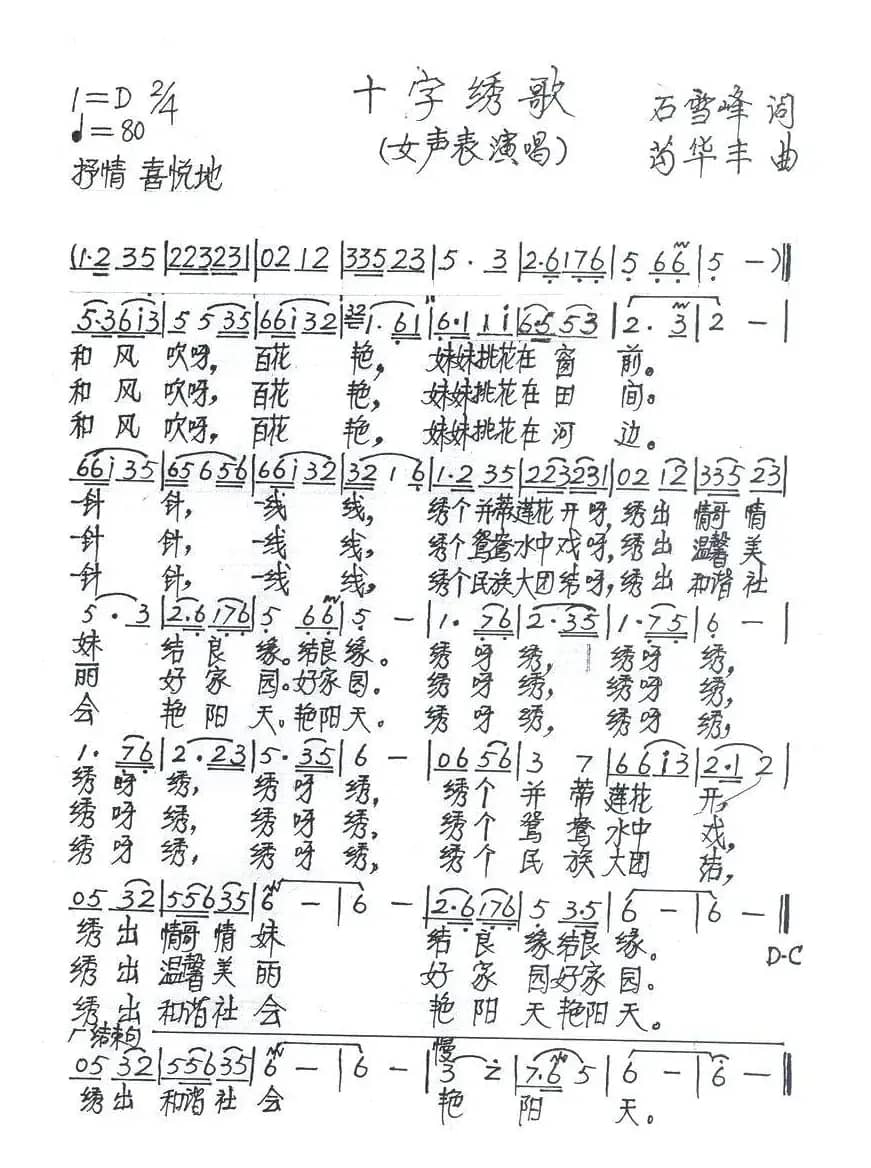 1=D 2/4
♩=80
抒情 喜悦地
十字绣歌
(女声表演唱)
石雪峰 词
苟华丰 曲
(1·2 35|22323|02 12|33523|5 · 3|2·6176|5 66|5 —)‖
5·36i3|5 5 35|66i32|32 1· 61|6·1 11|6·5 53|2· 3|2 —|
和风吹呀,百花艳,妹妹挑花在窗前。
和风吹呀,百花艳,妹妹挑花在田间。
和风吹呀,百花艳,妹妹挑花在河边。
66i35|65656|66i32|32 1 6|1·2 35|223231|02 12|33523|
一针针,一线线,绣个并蒂莲花开呀,绣出情哥情
一针针,一线线,绣个鸳鸯水中戏呀,绣出温馨美
一针针,一线线,绣个民族大团结呀,绣出和谐社
5 · 3|2·6176|5 66|5 —|1· 76|2·35|1·75|6 —|
妹结良缘。结良缘。绣呀绣,绣呀绣,
丽好家园。好家园。绣呀绣,绣呀绣,
会艳阳天。艳阳天。绣呀绣,绣呀绣,
1· 76|2·23|5·35|6 —|06 56|3 7|66i3|2·1 2|
绣呀绣,绣呀绣,绣个并蒂莲花开,
绣呀绣,绣呀绣,绣个鸳鸯水中戏,
绣呀绣,绣呀绣,绣个民族大团结,
05 32|55635|6 —|6 —|2·6176|5 3·5|6 —|6 —‖
绣出情哥情妹结良缘结良缘。
D·C
绣出温馨美丽好家园好家园。
绣出和谐社会艳阳天艳阳天。
结束句
慢
05 32|55635|6 —|6 —|3 2|7·6 5|6 —|6 —‖
绣出和谐社会艳阳天。